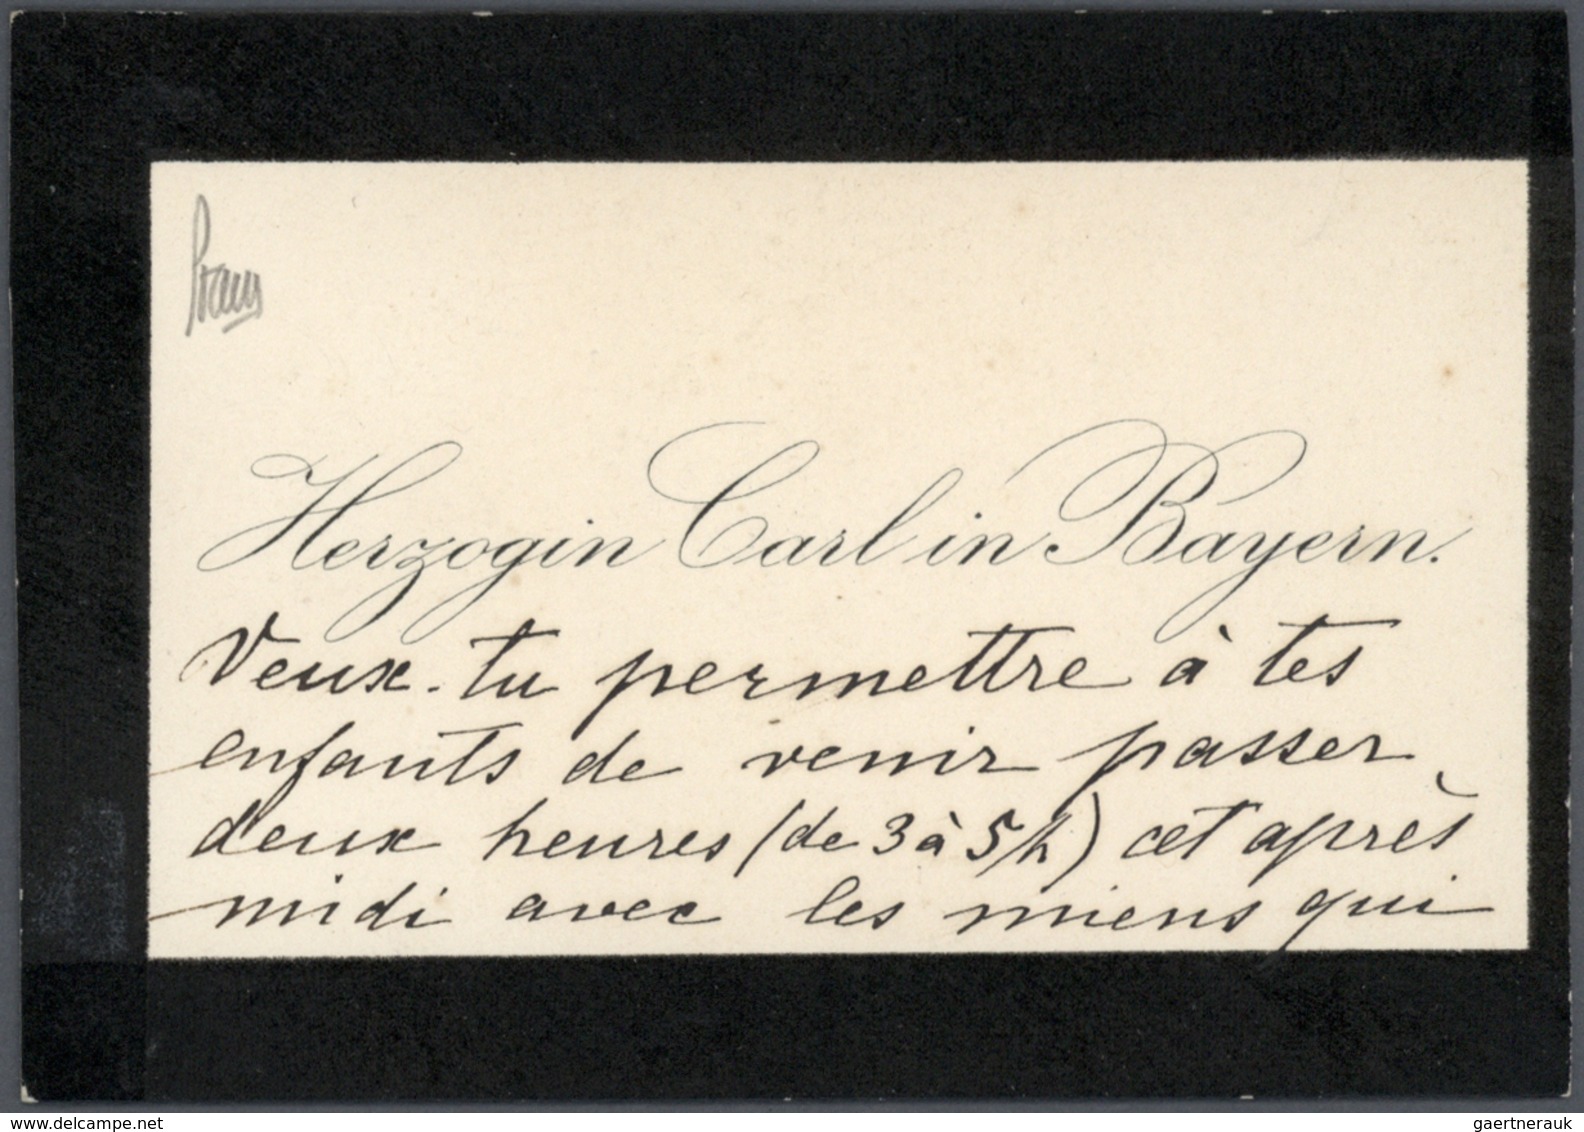 Herzogin Carl in Bayern.
Veux-tu permettre à tes
enfants de venir passer
deux heures (de 3 à 5 h) cet après
midi avec les miens qui
www.delcampe.net
gaertnerauk